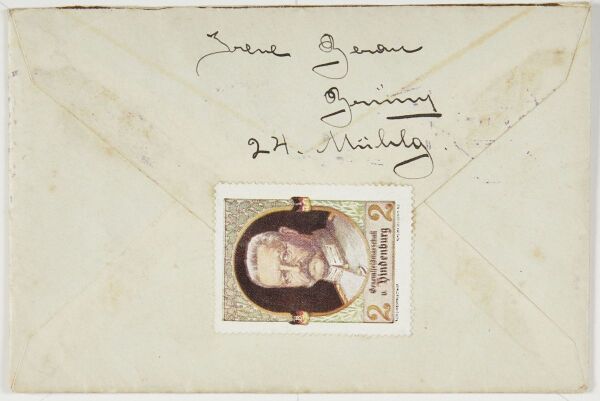 Irene Beran
Brünn
24. Mühlg.
2
Generalfeldmarschall
v. Hindenburg
2